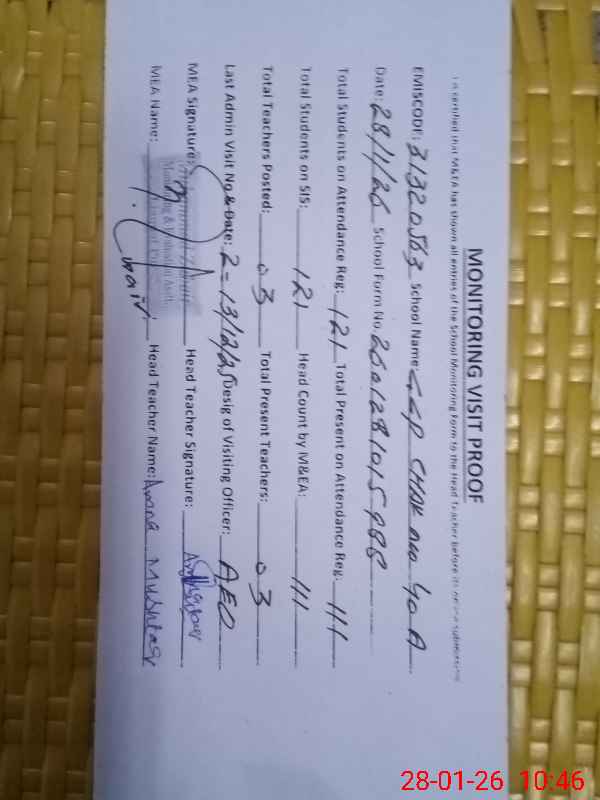 MONITORING VISIT PROOF
It is certified that M&EA has shown all entries of the School Monitoring Form to the Head Teacher before its online submission
EMISCODE: 31320563 School Name: GGP CHAK No 40 A
Date: 28/1/26 School Form No. 2601281015988
Total Students on Attendance Reg: 121 Total Present on Attendance Reg: 111
Total Students on SIS: 121 Head Count by M&EA: 111
Total Teachers Posted: 03 Total Present Teachers: 03
Last Admin Visit No & Date: 2 = 13/12/25 Desig of Visiting Officer: AEO
MEA Signature: Head Teacher Signature:
Monitoring & Evaluation Asstt:
MEA Name: Head Teacher Name: Amna Mushtaq
28-01-26 10:46